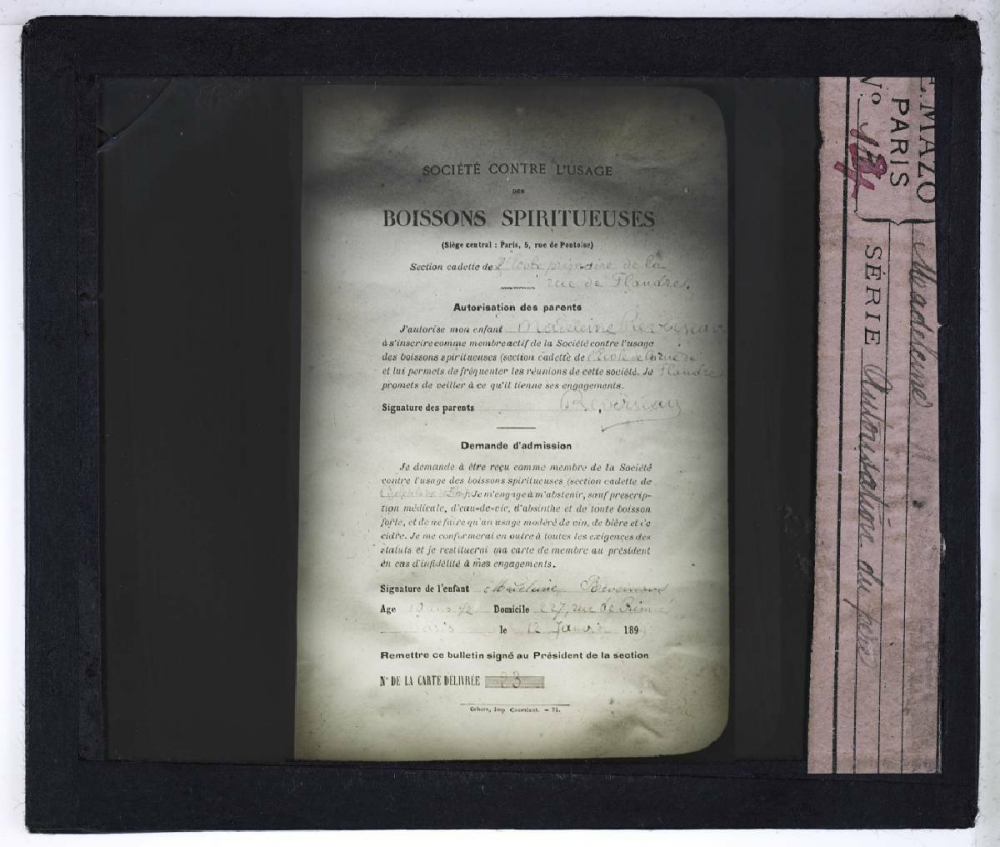 SOCIÉTÉ CONTRE L'USAGE
DES
BOISSONS SPIRITUEUSES
(Siège central : Paris, 5, rue de Pontoise)
Section cadette de l'École primaire de la
rue de Flandres.
Autorisation des parents
J'autorise mon enfant Madeleine
à s'inscrire comme membre actif de la Société contre l'usage
des boissons spiritueuses (section cadette de l'École
et lui permets de fréquenter les réunions de cette société. Je Flandre
promets de veiller à ce qu'il tienne ses engagements.
Signature des parents
Demande d'admission
Je demande à être reçu comme membre de la Société
contre l'usage des boissons spiritueuses (section cadette de
Je m'engage à m'abstenir, sauf prescrip-
tion médicale, d'eau-de-vie, d'absinthe et de toute boisson
forte, et de ne faire qu'un usage modéré de vin, de bière et de
cidre. Je me conformerai en outre à toutes les exigences des
statuts et je restituerai ma carte de membre au président
en cas d'infidélité à mes engagements.
Signature de l'enfant Madeleine
Age 10 ans 1/2 Domicile 127, rue de
Paris le 12 Janvier 189
Remettre ce bulletin signé au Président de la section
N° DE LA CARTE DÉLIVRÉE 23
Cahors, Imp. Coueslant. — 71.
E. MAZO
PARIS
N°
Madeleine
SÉRIE Autorisation du père